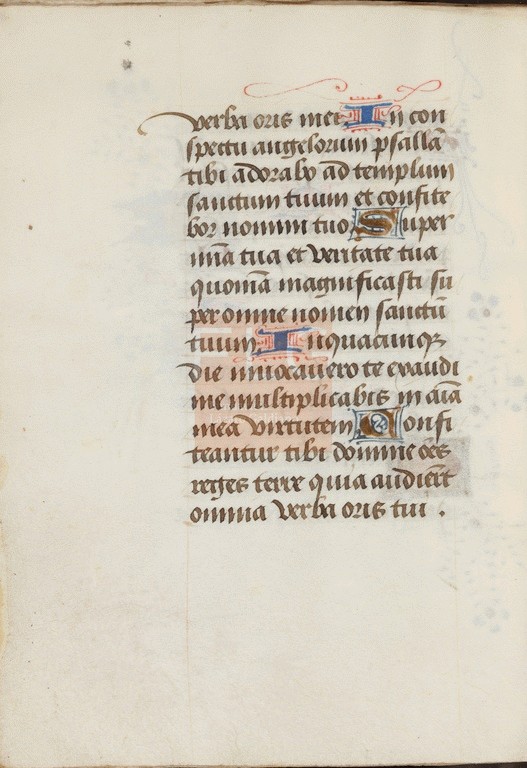 verba oris mei In con
spectu angelorum psallā
tibi adorabo ad templum
sanctum tuum et confite
bor nomini tuo Super
mīa tua et veritate tua
quoniā magnificasti su
per omne nomen sanctū
tuum Inquacunq
die invocavero te exaudi
me multiplicabis in aīa
mea virtutem Confi
teantur tibi domine oēs
reges terre quia audierūt
omnia verba oris tui .